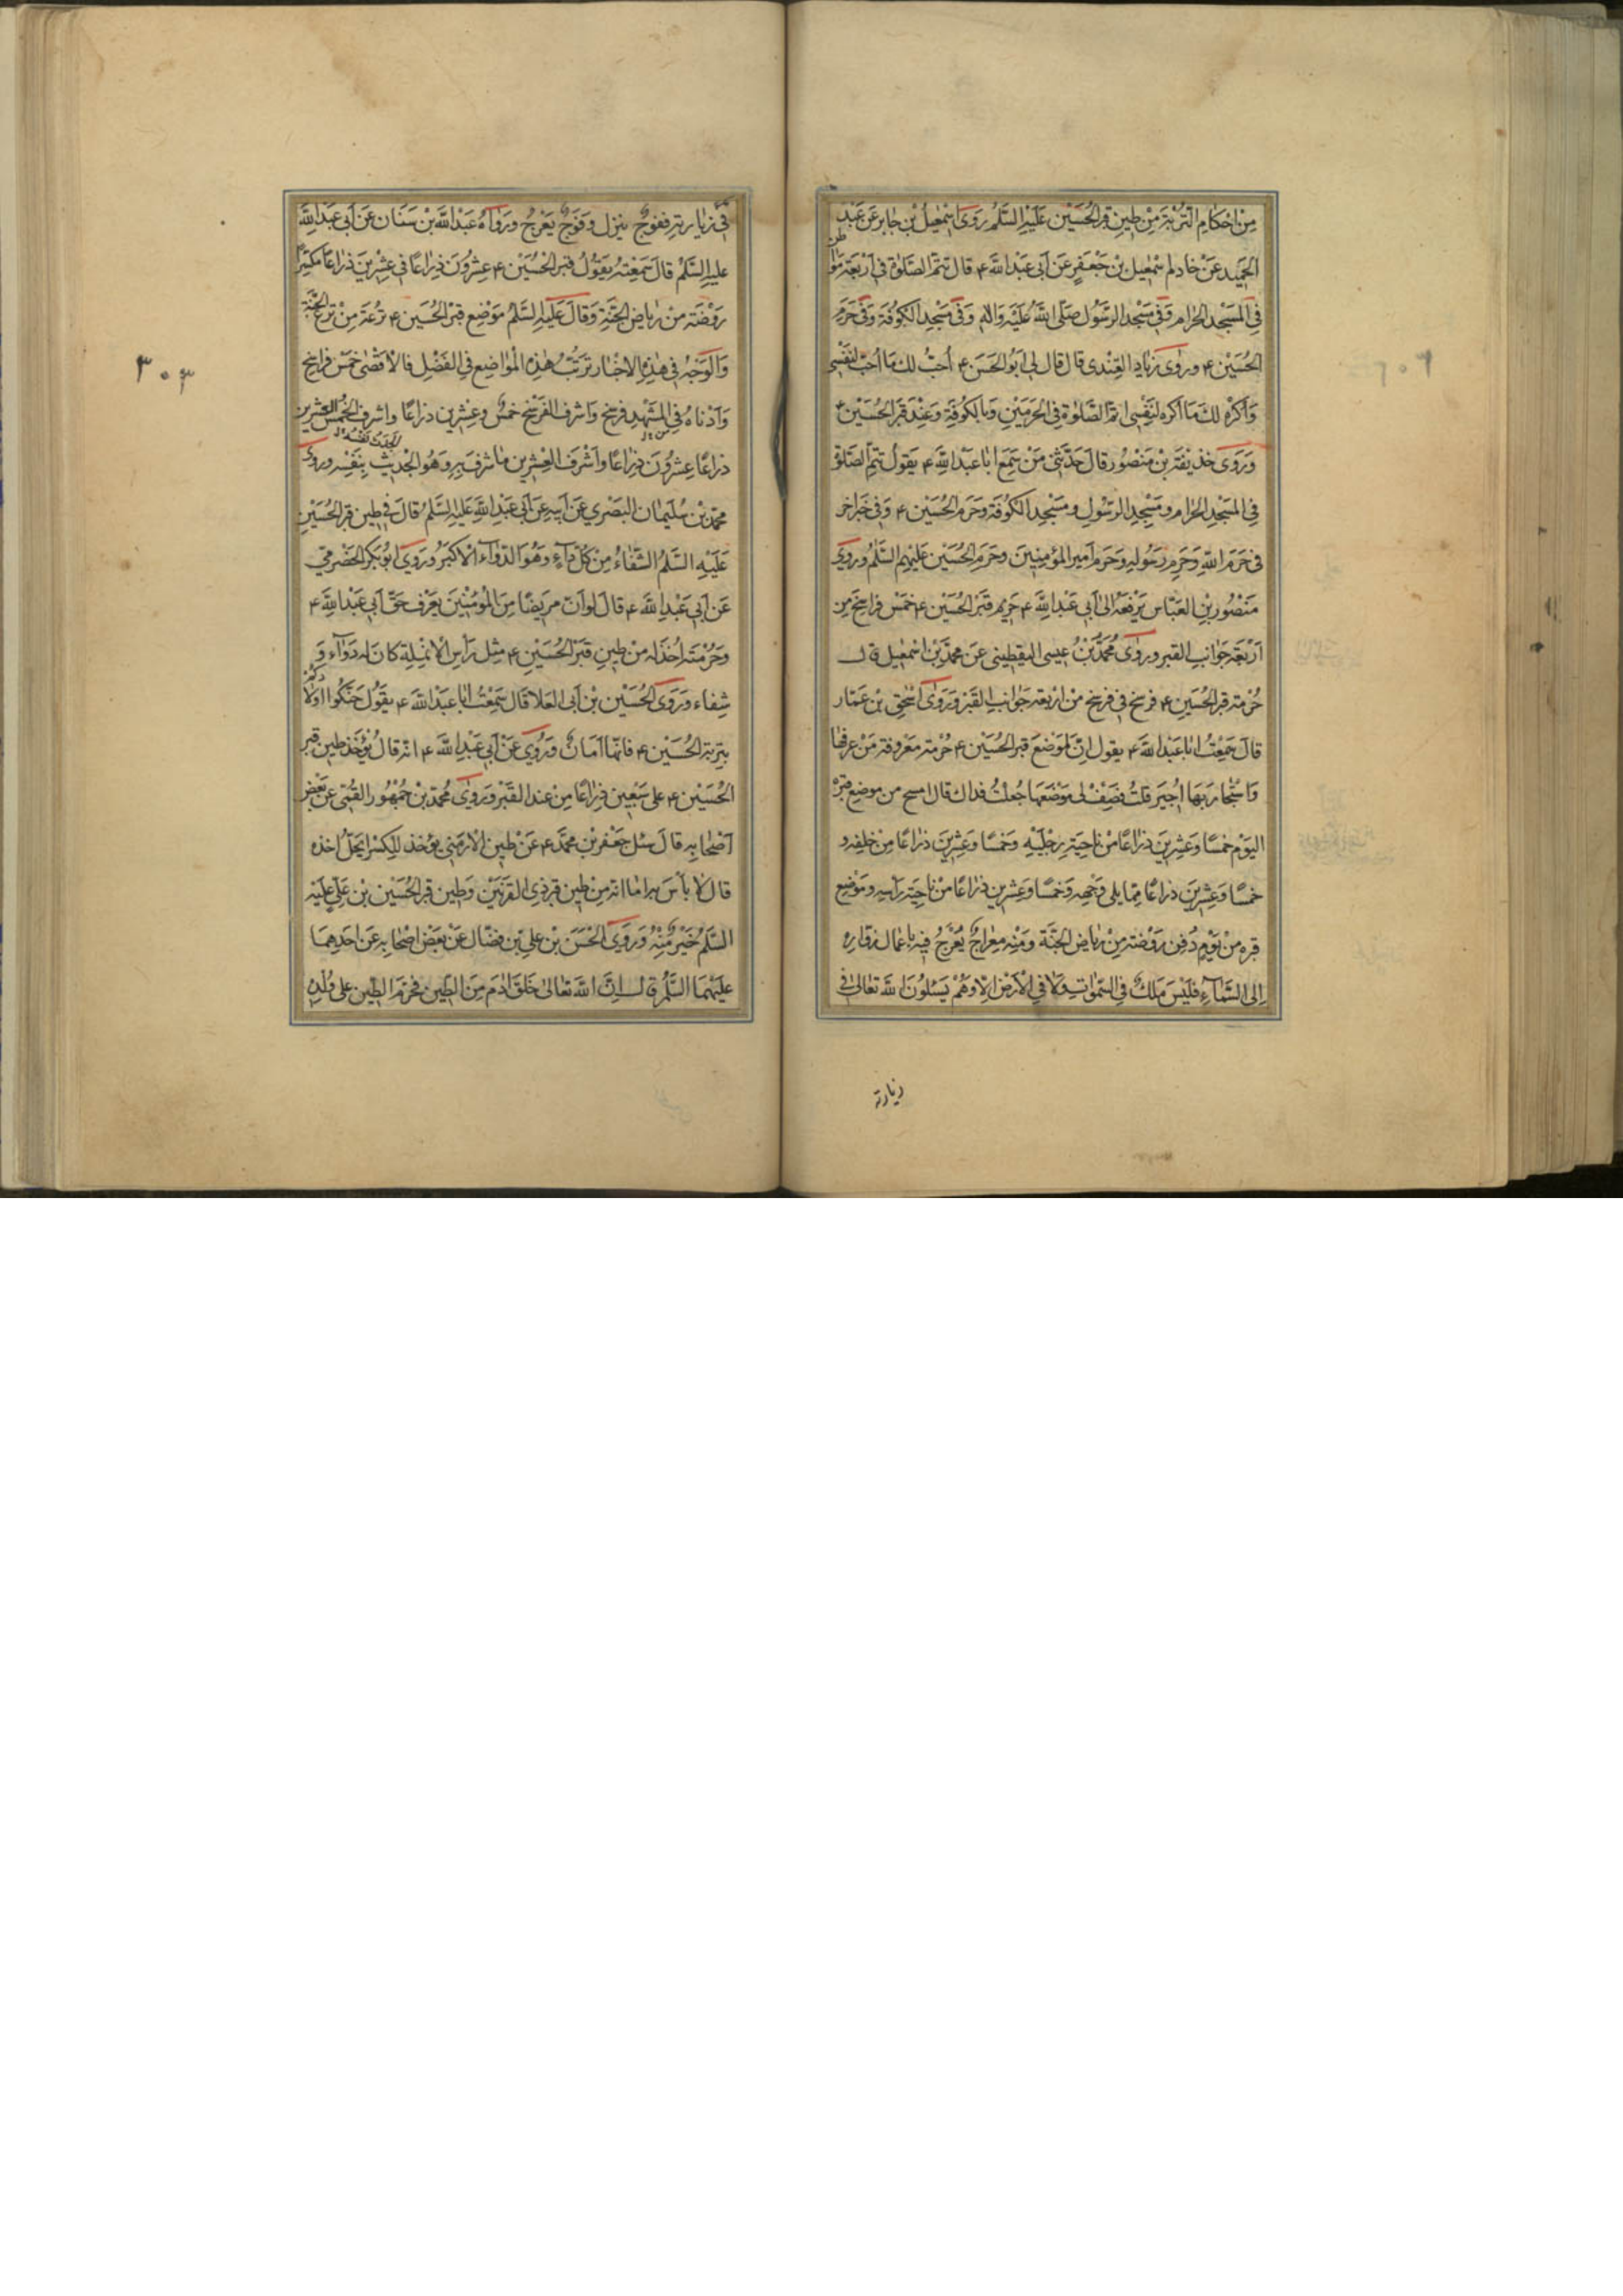 من احكام التربة من طين قبر الحسين عليه السلم روى اسمعيل بن جابر عن عبد
الحميد عن خادم اسمعيل بن جعفر عن ابى عبد الله ع قال تتم الصلوة فى اربعة مواطن
فى المسجد الحرام وفى مسجد الرسول صلى الله عليه واله وفى مسجد الكوفة وفى حرم
الحسين ع وروى زياد القندى قال قال لى ابو الحسن ع احب لك ما احب لنفسى
واكره لك ما اكره لنفسى اتم الصلوة فى الحرمين وبالكوفة وعند قبر الحسين ع
وروى حذيفة بن منصور قال حدثنى من سمع ابا عبد الله ع يقول تتم الصلوة
فى المسجد الحرام ومسجد الرسول ومسجد الكوفة وحرم الحسين ع وفى خبر اخر
فى حرم الله وحرم رسوله وحرم امير المؤمنين وحرم الحسين عليهم السلم وروى
منصور بن العباس يرفعه الى ابى عبد الله ع حريم قبر الحسين ع خمس فراسخ من
اربعة جوانب القبر وروى محمد بن عيسى اليقطينى عن محمد بن اسمعيل قال
حرمة قبر الحسين ع فرسخ فى فرسخ من اربعة جوانب القبر وروى اسحق بن عمار
قال سمعت ابا عبد الله ع يقول ان لموضع قبر الحسين ع حرمة معروفة من عرفها
واستجار بها اجير قلت فصف لى موضعها جعلت فداك قال امسح من موضع قبره
اليوم خمسا وعشرين ذراعا من ناحية رجليه وخمسا وعشرين ذراعا من خلفه و
خمسا وعشرين ذراعا مما يلى وجهه وخمسا وعشرين ذراعا من ناحية راسه وموضع
قبره من يوم دفن روضة من رياض الجنة ومنه معراج يعرج فيه باعمال زواره
الى السماء فليس ملك فى السموات ولا فى الارض الا وهم يسئلون الله تعالى فى
زيارته
فى زيارته ففوج ينزل وفوج يعرج ورواه عبد الله بن سنان عن ابى عبد الله
عليه السلم قال سمعته يقول قبر الحسين ع عشرون ذراعا فى عشرين ذراعا مكسرا
روضة من رياض الجنة وقال عليه السلم موضع قبر الحسين ع ترعة من ترع الجنة
والوجه فى هذه الاخبار ترتب هذه المواضع فى الفضل فالاقصى خمس فراسخ
وادناه فى المشهد فرسخ واشرف الفرسخ خمس وعشرين ذراعا واشرف الخمس العشرين
ذراعا عشرون ذراعا واشرف العشرين ما شرف به وهو الجدث بنفسه وروى
محمد بن سليمان البصري عن ابيه عن ابى عبد الله عليه السلم قال فى طين قبر الحسين
عليه السلم الشفاء من كل داء وهو الدواء الاكبر وروى ابو بكر الحضرمي
عن ابى عبد الله ع قال لو ان مريضا من المؤمنين يعرف حق ابى عبد الله ع
وحرمته اخذ له من طين قبر الحسين ع مثل راس الانملة كان له دواء و
شفاء وروى الحسين بن ابى العلا قال سمعت ابا عبد الله ع يقول حنكوا اولادكم
بتربة الحسين ع فانها امان وروي عن ابى عبد الله ع انه قال يؤخذ طين قبر
الحسين ع على سبعين ذراعا من عند القبر وروى محمد بن جمهور القمى عن بعض
اصحابه قال سئل جعفر بن محمد ع عن طين الارمنى يؤخذ للكسر ايحل اخذه
قال لا باس به اما انه من طين قبر ذى القرنين وطين قبر الحسين بن على عليه
السلم خير منه وروى الحسن بن على بن فضال عن بعض اصحابه عن احدهما
عليهما السلم قال ان الله تعالى خلق ادم من الطين فحرم الطين على ولده
۳۰۳